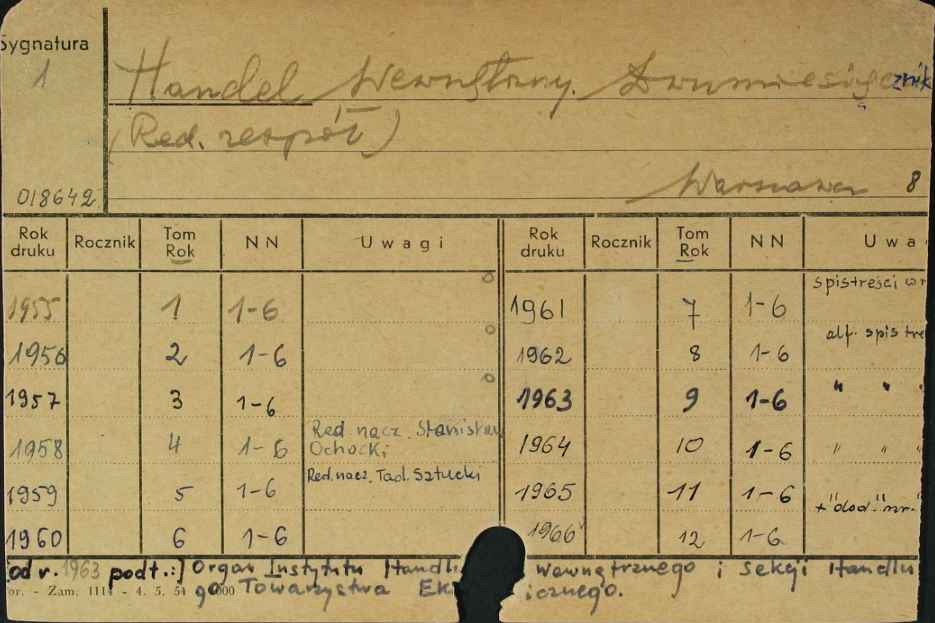 Sygnatura
1
Handel Wewnętrzny. Dwumiesięcznik
(Red. zespół)
018642 Warszawa 8
Rok druku Rocznik Tom Rok NN Uwagi Rok druku Rocznik Tom Rok NN Uwa
1955 1 1-6 1961 7 1-6 spis treści w
1956 2 1-6 1962 8 1-6 alf. spis tre
1957 3 1-6 1963 9 1-6 " "
1958 4 1-6 Red. nacz. Stanisław Ochocki 1964 10 1-6 " " "
1959 5 1-6 Red. nacz. Tad. Sztucki 1965 11 1-6
1960 6 1-6 1966 12 1-6 + "dod." nr.
[od r. 1963 podt.:] Organ Instytutu Handlu wewnętrznego i Sekcji Handlu
or. - Zam. 111 - 4. 5. 51 000 go Towarzystwa Ek icznego.